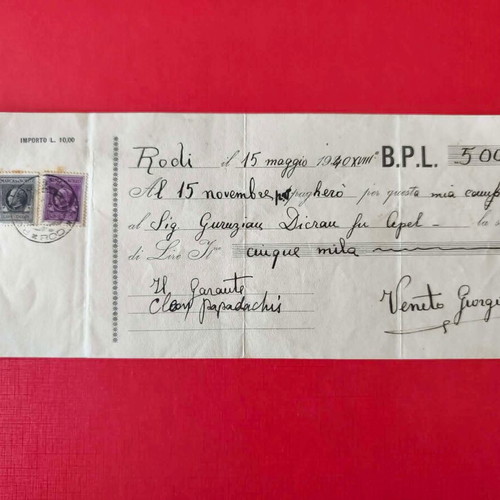 IMPORTO L. 10,00
Rodi il 15 maggio 1940 XVIII° B.P.L. 500
Al 15 novembre pagherò per questa mia camb
al Sig. Guruzian Dicran fu Apel - la
di Lire It. cinque mila
Il Garante
Cleon Papadachis
Veneto Giorgi
RODI